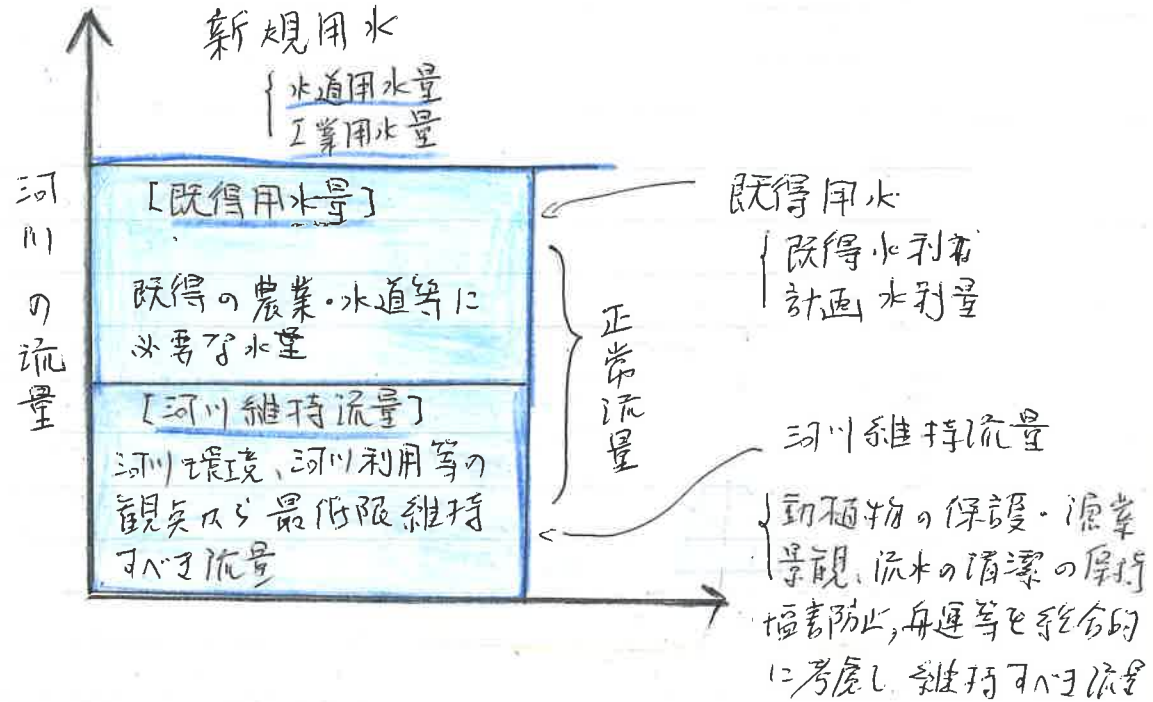 新規用水
水道用水量
工業用水量
河川の流量
[既得用水量]
既得の農業・水道等に
必要な水量
[河川維持流量]
河川環境、河川利用等の
観点から最低限維持
すべき流量
正常流量
既得用水
既得水利権
計画水利量
河川維持流量
動植物の保護・漁業
景観、流水の清潔の保持
塩害防止,舟運等を総合的
に考慮し維持すべき流量